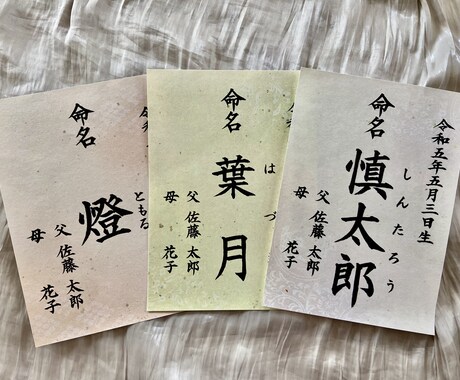 命名
燈
ともる
父 佐藤 太郎
母 花子
命名
葉月
はづ
父 佐藤 太郎
母 花子
令和五年五月三日生
命名
慎太郎
しんたろう
父 佐藤 太郎
母 花子